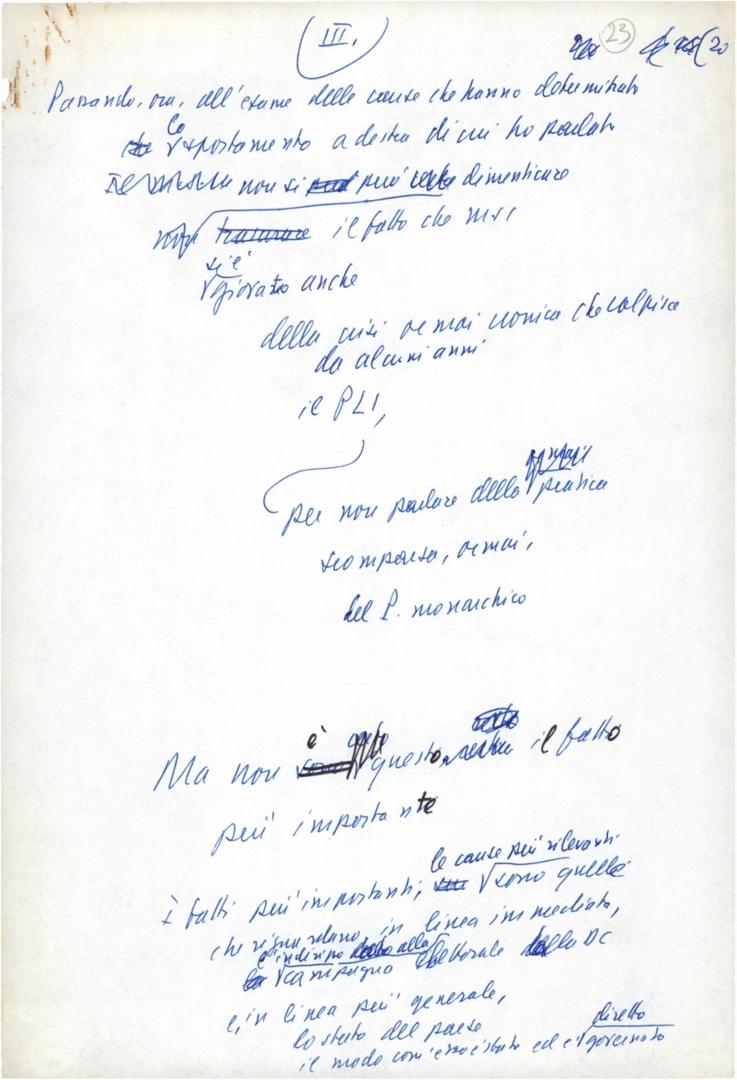 III.
23
20
Passando, ora, all'esame delle cause che hanno determinato
lo
spostamento a destra di cui ho parlato
non si può dimenticare
il fatto che MSI
si è
giovato anche
della crisi ormai cronica che colpisce
da alcuni anni
il PLI,
per non parlare della pratica
scomparsa, ormai,
del P. monarchico
è
Ma non questo il fatto
più importante
le cause più rilevanti
I fatti più importanti, sono quelle
che riguardano, in linea immediata,
l'indirizzo
campagna elettorale della DC
e, in linea più generale,
lo stato del paese
diretto
il modo com'esso è stato ed è governato